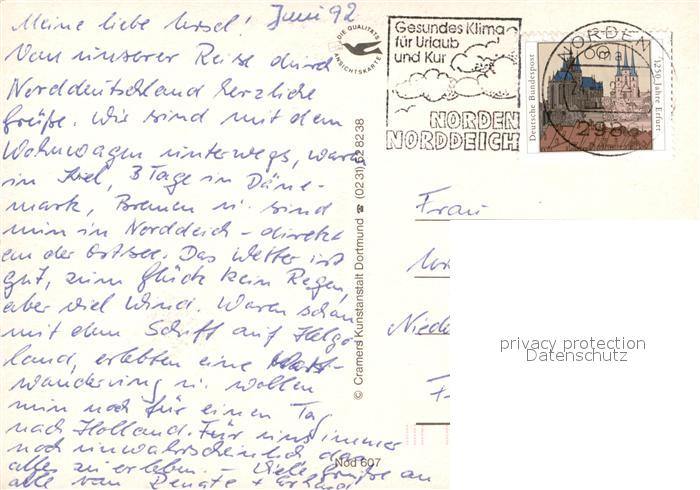 Meine liebe Ursel! Juni 92
Von unserer Reise durch
Norddeutschland herzliche
Grüße. Wir sind mit dem
Wohnwagen unterwegs, waren
in Kiel, 3 Tage in Däne-
mark, Bremen u. sind
nun in Norddeich - direkt
an der Ostsee. Das Wetter ist
gut, zum Glück kein Regen,
aber viel Wind. Waren schon
mit dem Schiff auf Helgo-
land, erlebten eine Watt-
wanderung u. wollen
nun noch für einen Tag
nach Holland. Für uns immer
noch unwahrscheinlich das
alles zu erleben. - Viele Grüße an
alle von Renate + Erhard
DIE QUALITÄTS
ANSICHTSKARTE
© Cramers Kunstanstalt Dortmund ☎ (0231) 628238
Nod 607
Gesundes Klima
für Urlaub
und Kur
NORDEN
NORDDEICH
NORDEN
298
Deutsche Bundespost
1250 Jahre Erfurt
Frau
Niede
privacy protection
Datenschutz